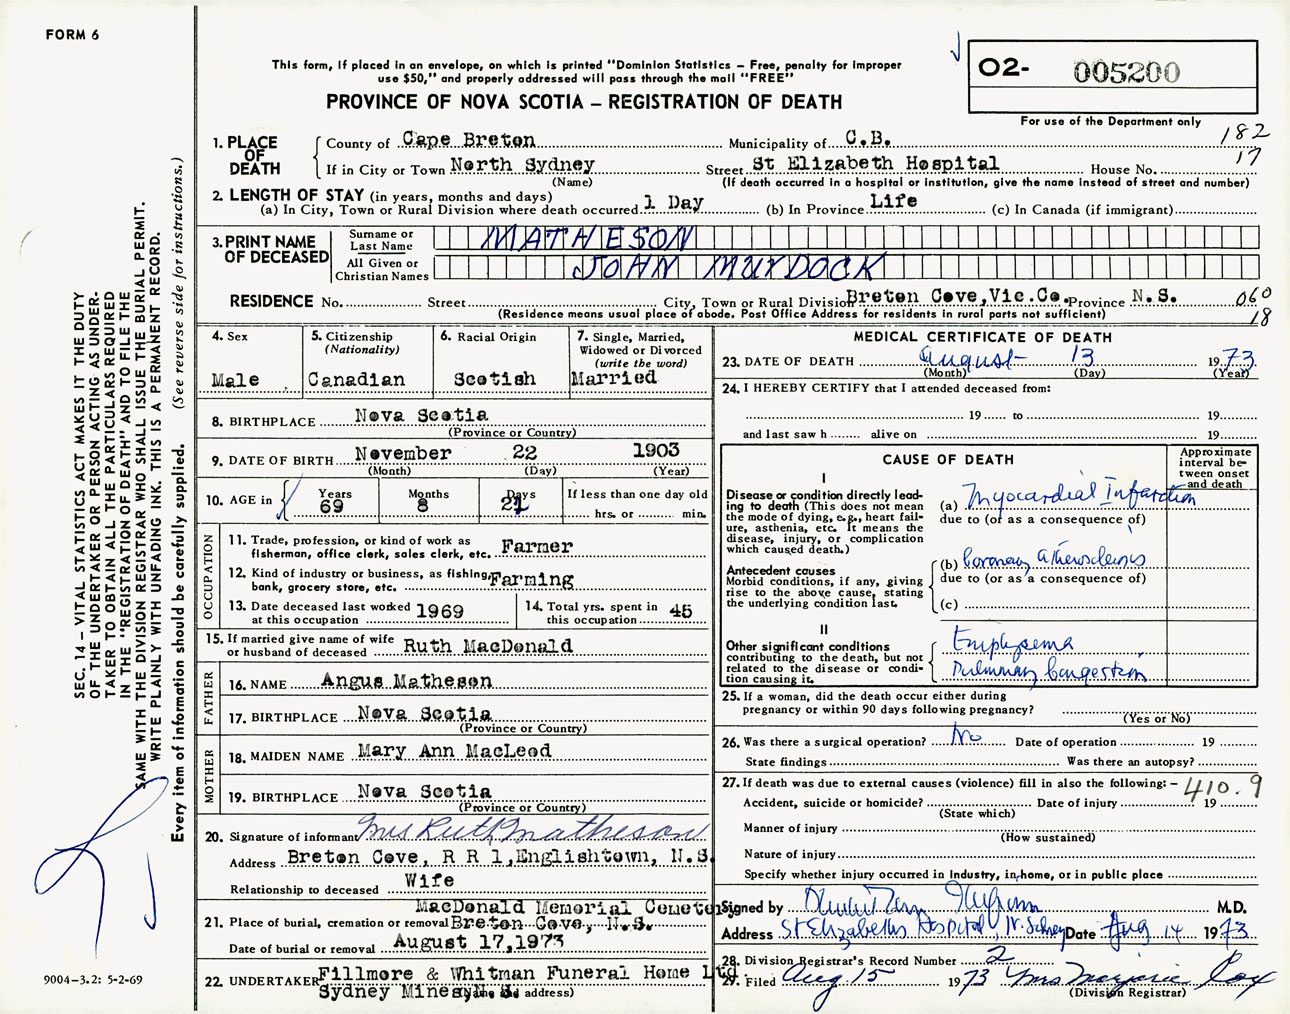 FORM 6
This form, if placed in an envelope, on which is printed "Dominion Statistics – Free, penalty for improper
use $50," and properly addressed will pass through the mail "FREE"
PROVINCE OF NOVA SCOTIA – REGISTRATION OF DEATH
O2- 005200
For use of the Department only
182
17
1. PLACE OF DEATH
County of Cape Breton Municipality of C.B.
If in City or Town North Sydney Street St Elizabeth Hospital House No.
(Name) (If death occurred in a hospital or institution, give the name instead of street and number)
2. LENGTH OF STAY (in years, months and days)
(a) In City, Town or Rural Division where death occurred 1 Day (b) In Province Life (c) In Canada (if immigrant)
3. PRINT NAME OF DECEASED
Surname or Last Name MATHESON
All Given or Christian Names JOHN MURDOCK
RESIDENCE No. Street City, Town or Rural Division Breton Cove, Vic. Co. Province N.S. 060
(Residence means usual place of abode. Post Office Address for residents in rural parts not sufficient) 18
4. Sex
Male
5. Citizenship
(Nationality)
Canadian
6. Racial Origin
Scotish
7. Single, Married,
Widowed or Divorced
(write the word)
Married
8. BIRTHPLACE Nova Scotia
(Province or Country)
9. DATE OF BIRTH November 22 1903
(Month) (Day) (Year)
10. AGE in Years Months Days If less than one day old
69 8 21 hrs. or min.
OCCUPATION
11. Trade, profession, or kind of work as
fisherman, office clerk, sales clerk, etc. Farmer
12. Kind of industry or business, as fishing,
bank, grocery store, etc. Farming
13. Date deceased last worked
at this occupation 1969
14. Total yrs. spent in
this occupation 45
15. If married give name of wife
or husband of deceased Ruth MacDonald
FATHER
16. NAME Angus Matheson
17. BIRTHPLACE Nova Scotia
(Province or Country)
MOTHER
18. MAIDEN NAME Mary Ann MacLeod
19. BIRTHPLACE Nova Scotia
(Province or Country)
20. Signature of informant Mrs Ruth Matheson
Address Breton Cove, R R 1, Englishtown, N.S.
Relationship to deceased Wife
MacDonald Memorial Cemetery
21. Place of burial, cremation or removal Breton Cove, N.S.
Date of burial or removal August 17, 1973
22. UNDERTAKER Fillmore & Whitman Funeral Home Ltd.
Sydney Mines, N.S.
(Name and address)
MEDICAL CERTIFICATE OF DEATH
23. DATE OF DEATH August 13 1973
(Month) (Day) (Year)
24. I HEREBY CERTIFY that I attended deceased from:
19 to 19
and last saw h alive on 19
CAUSE OF DEATH
Approximate interval between onset and death
I
Disease or condition directly leading to death (This does not
mean the mode of dying, e.g., heart failure, asthenia, etc. It means the
disease, injury, or complication
which caused death.)
(a) Myocardial Infarction
due to (or as a consequence of)
Antecedent causes
Morbid conditions, if any, giving
rise to the above cause, stating
the underlying condition last.
(b) Coronary Atherosclerosis
due to (or as a consequence of)
(c)
II
Other significant conditions
contributing to the death, but not
related to the disease or condition causing it.
Emphysema
Pulmonary Congestion
25. If a woman, did the death occur either during
pregnancy or within 90 days following pregnancy?
(Yes or No)
26. Was there a surgical operation? No Date of operation 19
State findings Was there an autopsy?
27. If death was due to external causes (violence) fill in also the following: – 410.9
Accident, suicide or homicide? Date of injury 19
(State which)
Manner of injury
(How sustained)
Nature of injury
Specify whether injury occurred in industry, in home, or in public place
Signed by M.D.
Address St Elizabeths Hospital, N. Sydney Date Aug 14 1973
28. Division Registrar's Record Number 2
29. Filed Aug. 15 1973 Mrs Marjorie Cox
(Division Registrar)
SEC. 14 – VITAL STATISTICS ACT MAKES IT THE DUTY
OF THE UNDERTAKER OR PERSON ACTING AS UNDER-
TAKER TO OBTAIN ALL THE PARTICULARS REQUIRED
IN THE "REGISTRATION OF DEATH" AND TO FILE THE
SAME WITH THE DIVISION REGISTRAR WHO SHALL ISSUE THE BURIAL PERMIT.
WRITE PLAINLY WITH UNFADING INK. THIS IS A PERMANENT RECORD.
Every item of information should be carefully supplied. (See reverse side for instructions.)
9004-3.2: 5-2-69